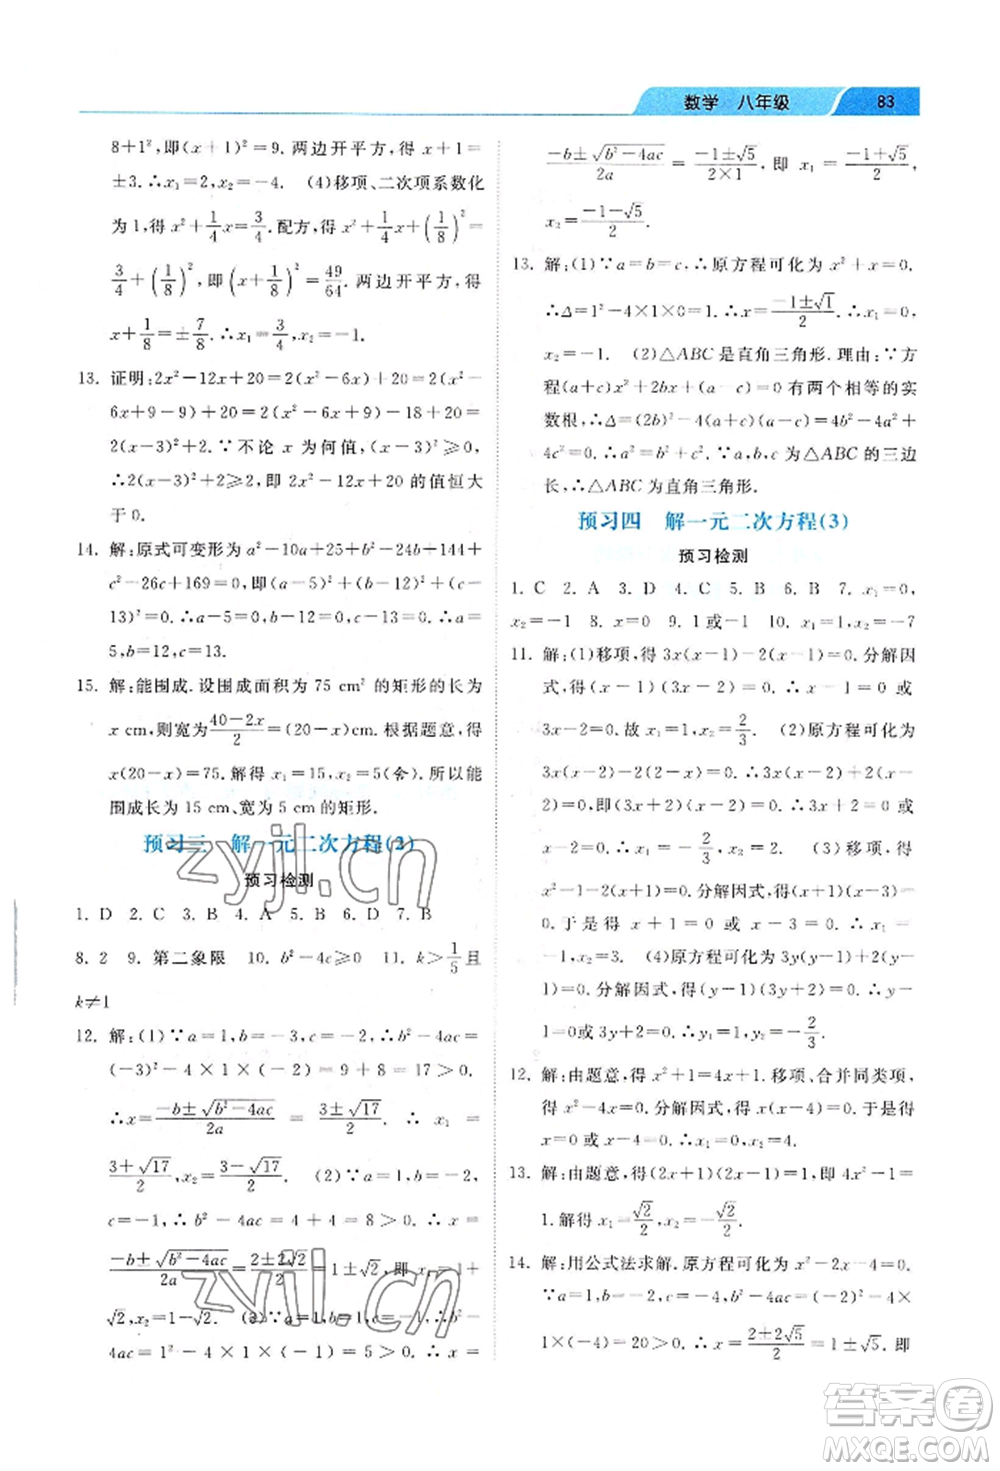 数学 八年级 83
8+1²,即(x+1)²=9. 两边开平方,得 x+1=
±3.∴x₁=2,x₂=-4. (4)移项、二次项系数化
为1,得 x²+1/4x=3/4.配方,得 x²+1/4x+(1/8)²=
3/4+(1/8)²,即(x+1/8)²=49/64.两边开平方,得
x+1/8=±7/8.∴x₁=3/4,x₂=-1.
13. 证明:2x²-12x+20=2(x²-6x)+20=2(x²-
6x+9-9)+20=2(x²-6x+9)-18+20=
2(x-3)²+2.∵不论 x 为何值,(x-3)²⩾0.
∴2(x-3)²+2⩾2,即 2x²-12x+20 的值恒大
于 0.
14. 解:原式可变形为 a²-10a+25+b²-24b+144+
c²-26c+169=0,即(a-5)²+(b-12)²+(c-
13)²=0.∴a-5=0,b-12=0,c-13=0.∴a=
5,b=12,c=13.
15. 解:能围成.设围成面积为 75 cm² 的矩形的长为
x cm,则宽为(40-2x)/2=(20-x)cm.根据题意,得
x(20-x)=75.解得 x₁=15,x₂=5(舍).所以能
围成长为 15 cm、宽为 5 cm 的矩形.
预习三 解一元二次方程(2)
预习检测
1. D 2. C 3. B 4. A 5. B 6. D 7. B
8. 2 9. 第二象限 10. b²-4c⩾0 11. k>1/5且
k≠1
12. 解:(1)∵a=1,b=-3,c=-2,∴b²-4ac=
(-3)²-4×1×(-2)=9+8=17>0.
∴x=(-b±√(b²-4ac))/2a=(3±√17)/2.∴x₁=
(3+√17)/2,x₂=(3-√17)/2. (2)∵a=1,b=-2,
c=-1,∴b²-4ac=4+4=8>0.∴x=
(-b±√(b²-4ac))/2a=(2±2√2)/2=1±√2,即 x₁=1+
√2,x₂=1-√2. (3)∵a=1,b=1,c=-1,∴b²-
4ac=1²-4×1×(-1)=5>0.∴x=
(-b±√(b²-4ac))/2a=(-1±√5)/(2×1)=(-1±√5)/2,即 x₁=(-1+√5)/2,
x₂=(-1-√5)/2.
13. 解:(1)∵a=b=c,∴原方程可化为 x²+x=0.
∴Δ=1²-4×1×0=1>0.∴x=(-1±√1)/2.∴x₁=0,
x₂=-1. (2)△ABC是直角三角形.理由:∵方
程(a+c)x²+2bx+(a-c)=0 有两个相等的实
数根,∴Δ=(2b)²-4(a+c)(a-c)=4b²-4a²+
4c²=0.∴a²=b²+c².∵a、b、c 为△ABC 的三边
长,∴△ABC为直角三角形.
预习四 解一元二次方程(3)
预习检测
1. C 2. A 3. D 4. C 5. B 6. B 7. x₁=0,
x₂=-1 8. x=0 9. 1或-1 10. x₁=0,x₂=-7
11. 解:(1)移项,得 3x(x-1)-2(x-1)=0.分解因
式,得(x-1)(3x-2)=0.∴x-1=0 或
3x-2=0.故 x₁=1,x₂=2/3. (2)原方程可化为
3x(x-2)-2(2-x)=0,即 3x(x-2)+2(x-
2)=0.分解因式,得(3x+2)(x-2)=0.∴3x+
2=0 或 x-2=0.∴x₁=-2/3,x₂=2. (3)移项,得
x(x-5)+8(x-5)=0.分解因式,得(x-5)(x+8)=
0.于是得 x-5=0 或 x+8=0.∴x₁=5,
x₂=-8. (4)原方程可化为 3y(y-1)+2(y-1)
=0.分解因式,得(y-1)(3y+2)=0.∴y-1=
0 或 3y+2=0.∴y₁=1,y₂=-2/3.
12. 解:由题意,得 x²+1=4x+1.移项、合并同类项,
得 x²-4x=0.分解因式,得x(x-4)=0.于是得
x=0 或 x-4=0.∴x₁=0,x₂=4.
13. 解:由题意,得(2x+1)(2x-1)=1,即 4x²-1=
1.解得 x₁=√2/2,x₂=-√2/2.
14. 解:用公式法求解.原方程可化为 x²-2x-4=0.
∵a=1,b=-2,c=-4,b²-4ac=(-2)²-4×
1×(-4)=20>0.∴x=(2±2√5)/2=1±√5,即
zyjl.cn
zyjl.cn
答案圈
MXQE.COM